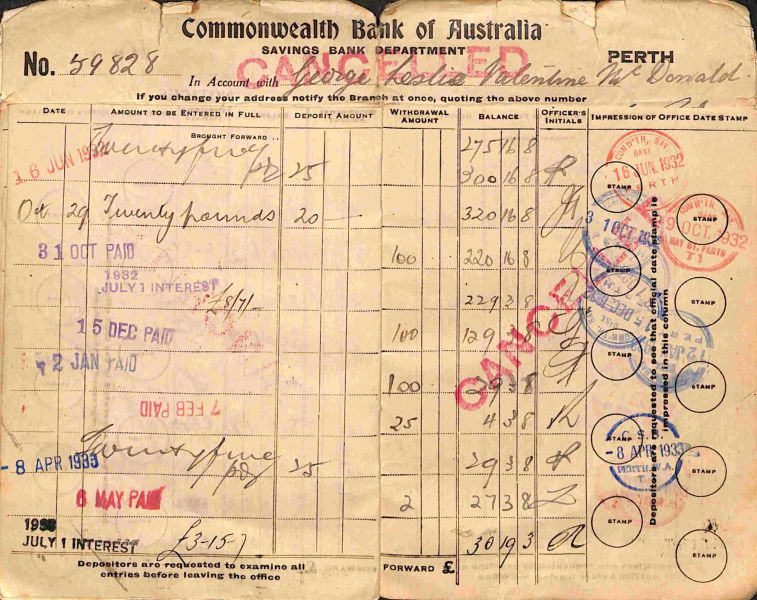 Commonwealth Bank of Australia
SAVINGS BANK DEPARTMENT
PERTH
No. 59828
CANCELLED
In Account with George Leslie Valentine McDonald
If you change your address notify the Branch at once, quoting the above number
DATE AMOUNT TO BE ENTERED IN FULL DEPOSIT AMOUNT WITHDRAWAL AMOUNT BALANCE OFFICER'S INITIALS IMPRESSION OF OFFICE DATE STAMP
BROUGHT FORWARD .. 275 16 8
16 JUN 1932 Twentyfive 25 300 16 8
Oct 29 Twenty pounds 20 — 320 16 8
31 OCT PAID 100 220 16 8
1932
JULY 1 INTEREST £8/7/- 229 3 8
15 DEC PAID 100 129 3 8
12 JAN PAID 100 29 3 8
7 FEB PAID 25 4 3 8
-8 APR 1933 Twentyfive 25 29 3 8
6 MAY PAID 2 27 3 8
1933
JULY 1 INTEREST £3-15-7 30 19 3
Depositors are requested to examine all
entries before leaving the office
FORWARD £
CANCEL
COMW'TH. SAV.
BANK
16 JUN. 1932
PERTH
STAMP
COMW'TH
29 OCT. 1932
HAY ST. PERTH
T1
STAMP
31 OCT 1932
STAMP
15 DEC 1932
STAMP
12 JAN
STAMP
STAMP
C. S. B.
-8 APR 1933
PERTH. W.A.
T.
STAMP
STAMP
STAMP
Depositors are requested to see that official date stamp is
impressed in this column